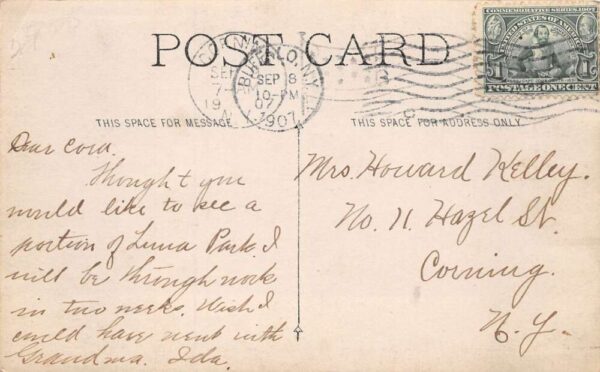 POST CARD
COMMEMORATIVE SERIES 1907
UNITED STATES OF AMERICA
1 1
POSTAGE ONE CENT
BUFFALO, N.Y.
SEP 8
10-PM
07
1907
SEP
7
19
THIS SPACE FOR MESSAGE
THIS SPACE FOR ADDRESS ONLY
Dear Cora.
Thought you
would like to see a
portion of Luna Park. I
will be through work
in two weeks. Wish I
could have went with
Grandma. Ida.
Mrs. Howard Kelley.
No. 11. Hazel St.
Corning.
N. Y.